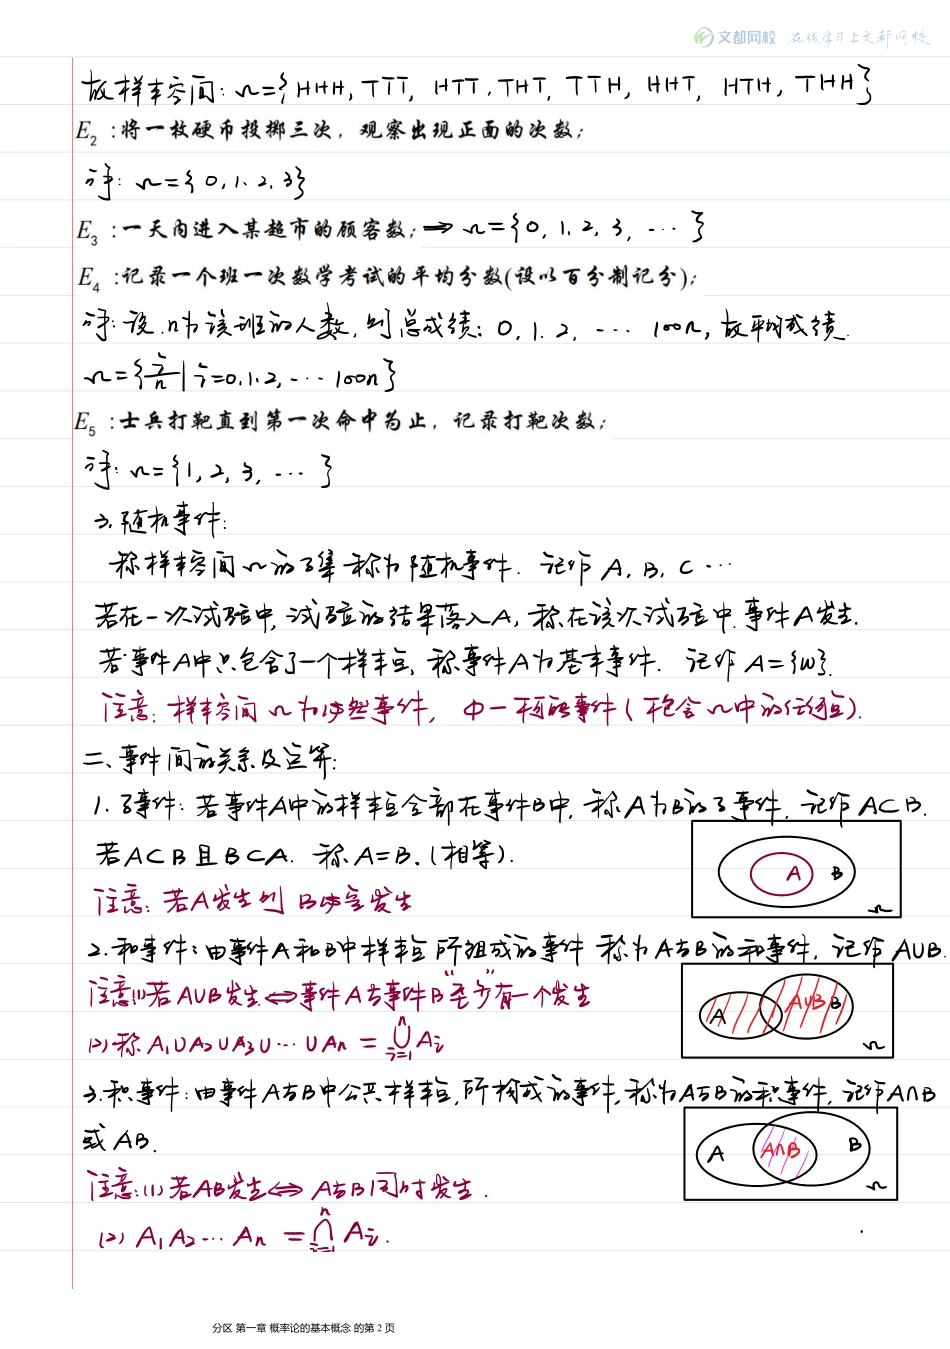 文都网校 在线学习上文都网校
故样本空间: Ω={HHH, TTT, HTT, THT, TTH, HHT, HTH, THH}
E₂ :将一枚硬币投掷三次，观察出现正面的次数;
解: Ω={0, 1, 2, 3}
E₃ :一天内进入某超市的顾客数; ⇒ Ω={0, 1, 2, 3, ...}
E₄ :记录一个班一次数学考试的平均分数(设以百分制记分);
解: 设 n为该班的人数, 则总成绩: 0, 1, 2, ... 100n, 故平均成绩
Ω={i/n | i=0,1,2,...100n}
E₅ :士兵打靶直到第一次命中为止，记录打靶次数;
解: Ω={1, 2, 3, ...}
3.随机事件:
称样本空间Ω的子集称为随机事件. 记作 A, B, C...
若在一次试验中, 试验的结果落入A, 称在该次试验中, 事件A发生.
若事件A中只包含了一个样本点, 称事件A为基本事件. 记作 A={ω}.
注意: 样本空间Ω为必然事件, Φ—不可能事件(不包含Ω中的任何点).
二、事件间的关系及运算:
1. 子事件: 若事件A中的样本点全部在事件B中, 称A为B的子事件, 记作 A⊂B.
若A⊂B且B⊂A. 称A=B.(相等).
A B Ω
注意: 若A发生则B必定发生
2.和事件: 由事件A和B中样本点所组成的事件 称为A与B的和事件, 记作 A∪B.
注意:(1)若A∪B发生⇔事件A与事件B“至少”有一个发生
A A∪B B Ω
(2)称 A₁∪A₂∪A₃∪...∪Aₙ = ⋃ⁿᵢ₌₁ Aᵢ
3.积事件: 由事件A与B中公共样本点, 所构成的事件, 称为A与B的积事件, 记作A∩B
或 AB.
A A∩B B Ω
注意:(1)若AB发生⇔A与B同时发生.
(2) A₁A₂...Aₙ = ⋂ⁿᵢ₌₁ Aᵢ.
分区 第一章 概率论的基本概念 的第 2 页